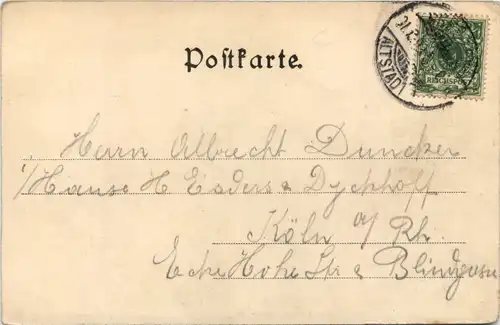 Postkarte.
ALTSTADT
REICHSPOST
Herrn Albrecht Duncker
i/Hause H Esders & Dyckhoff
Köln a/ Rh.
Ecke Hohe Str & Blindgasse